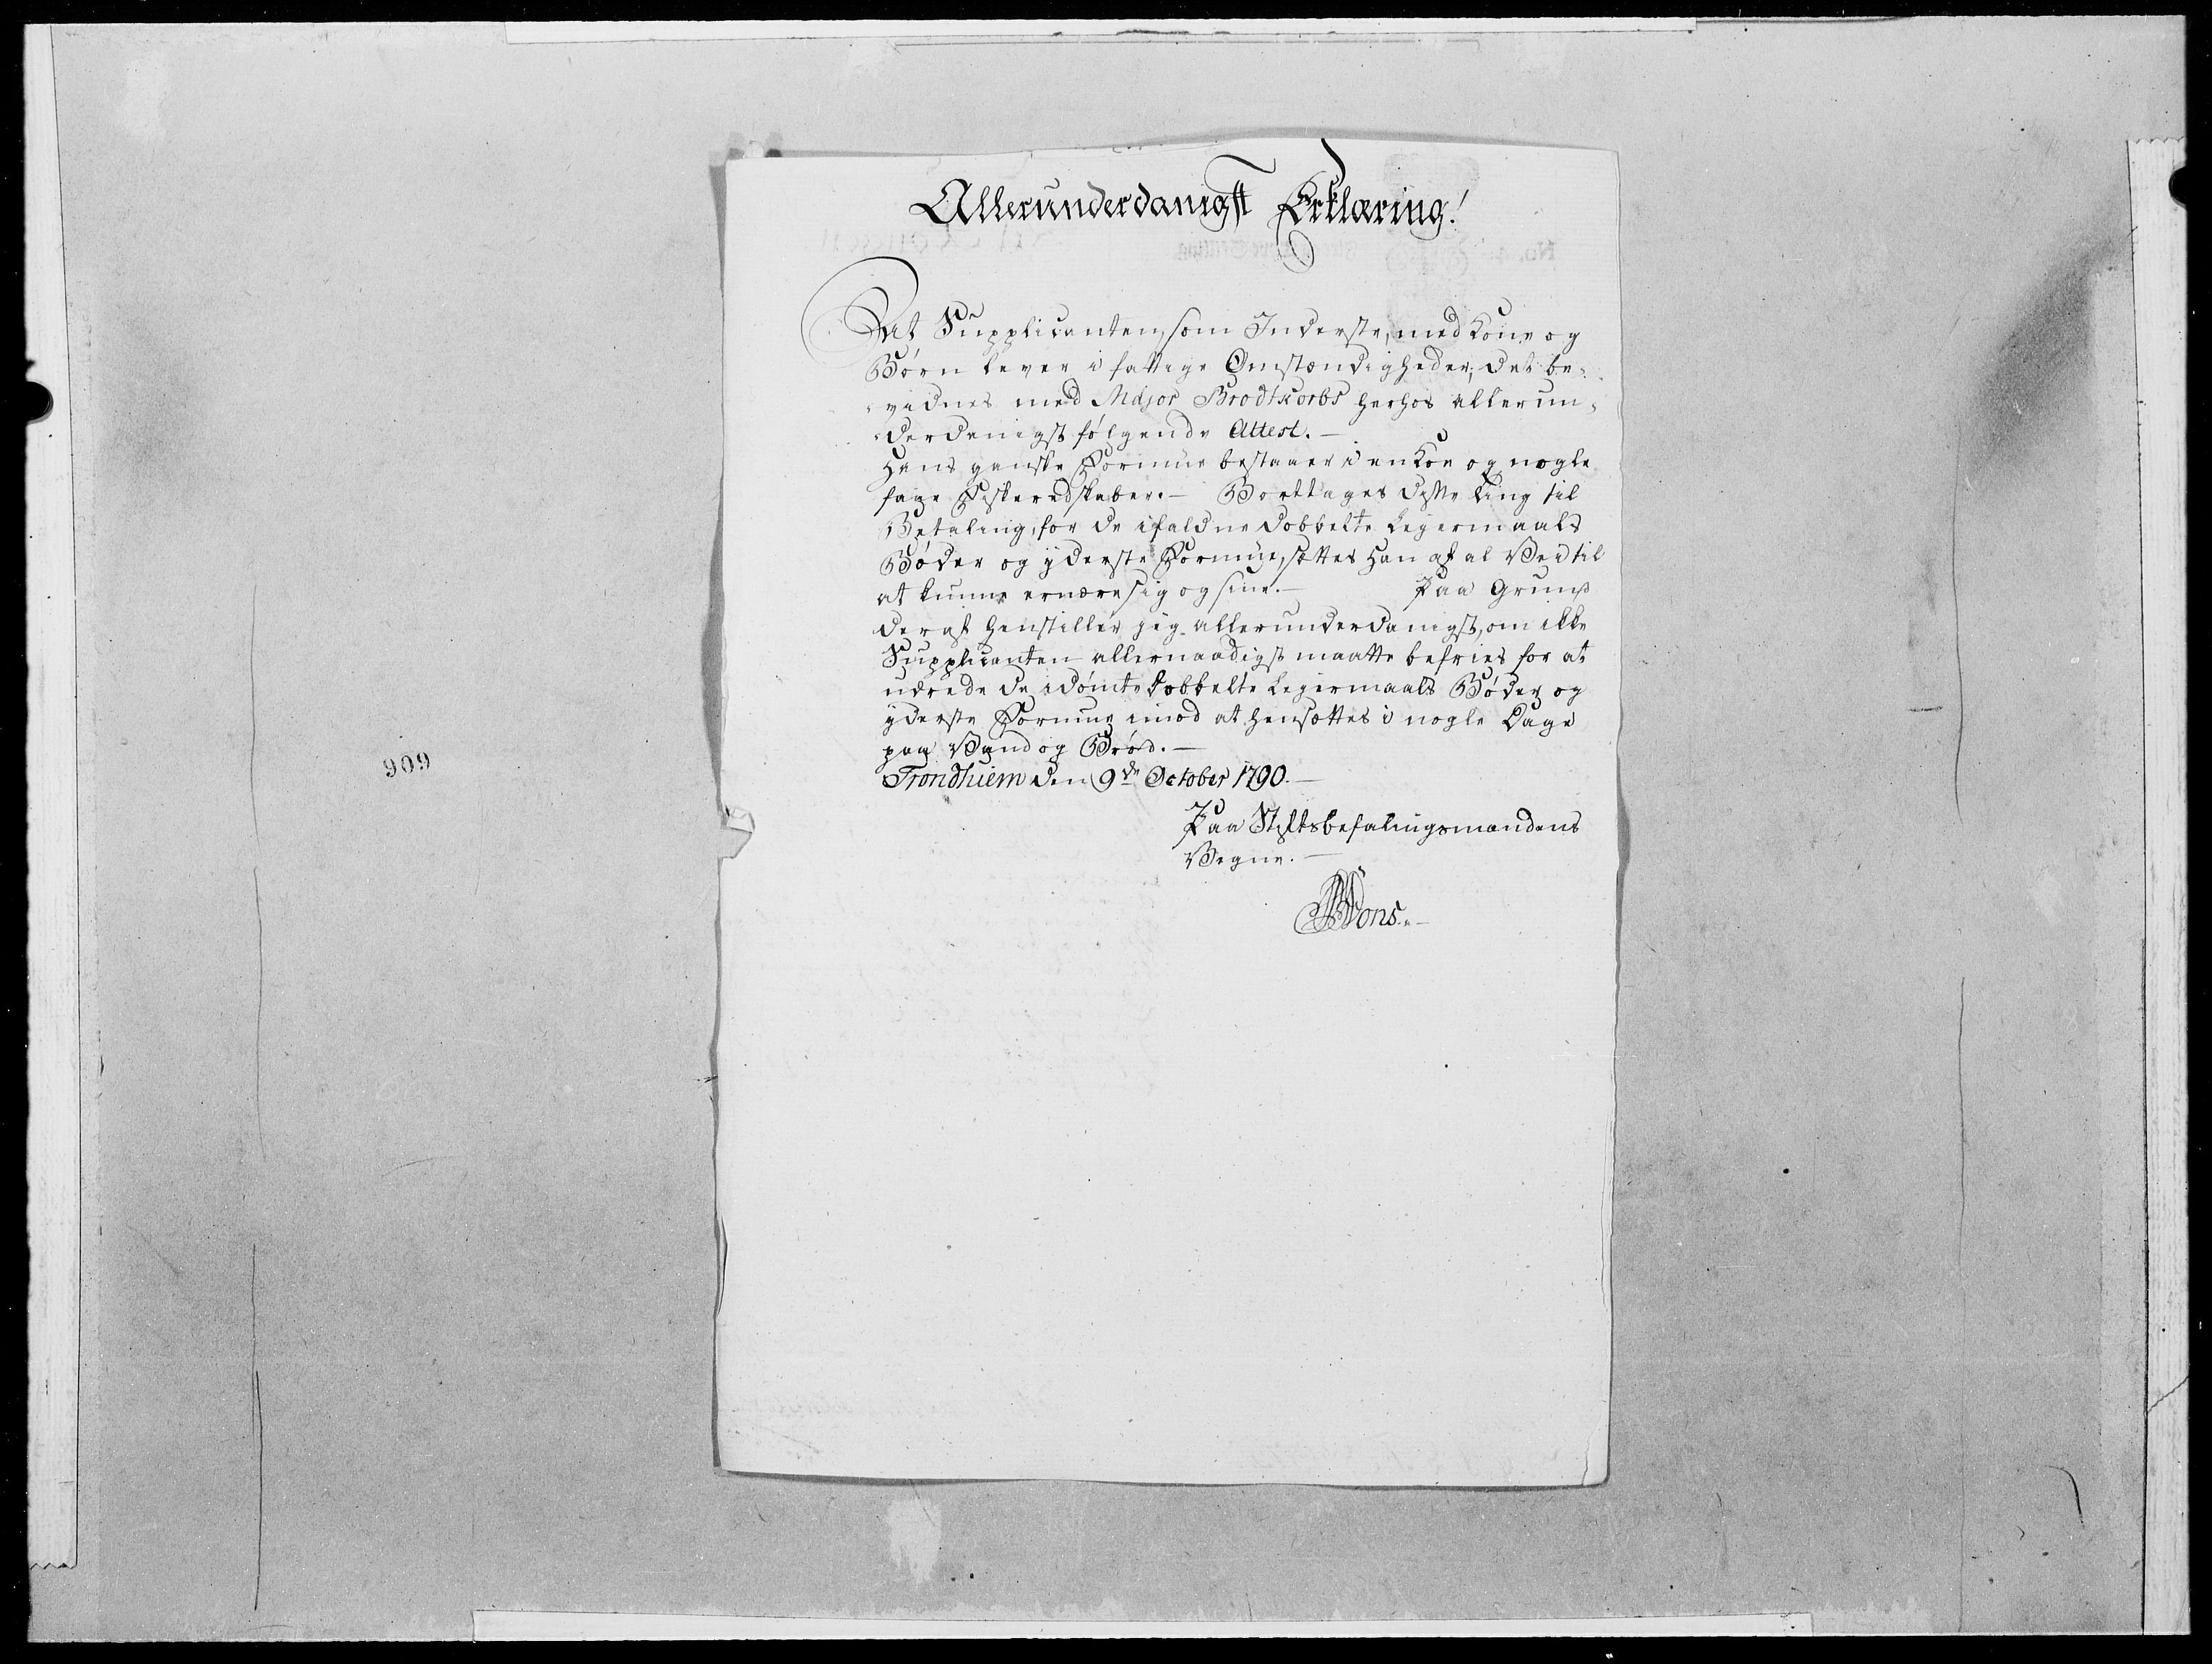 Allerunderdanigst Erklæring!
At Supplicanten, som Inderste, med Kone og
Børn lever i fattige Omstændigheder, det be-
vidnes med Major Brodtkorbs herhos allerun-
derdanigst følgende Attest. —
Hans ganske Formue bestaaer i en Koe og nogle
faae Fiskeredskaber. — Borttages disse Ting til
Betaling, for de ifaldne dobbelte Leyermaals
Bøder og yderste Formue, sættes Han af al Vei til
at kunne ernære sig og sine. — Paa Grund
deraf henstiller jeg allerunderdanigst, om ikke
Supplicanten allernaadigst maatte befries for at
udrede de idømte dobbelte Leyermaals Bøder og
yderste Formue imod at hensættes i nogle Dage
paa Vand og Brød. —
Trondhiem den 9de October 1790. —
Paa Stiftsbefalingsmandens
Vegne. —
909